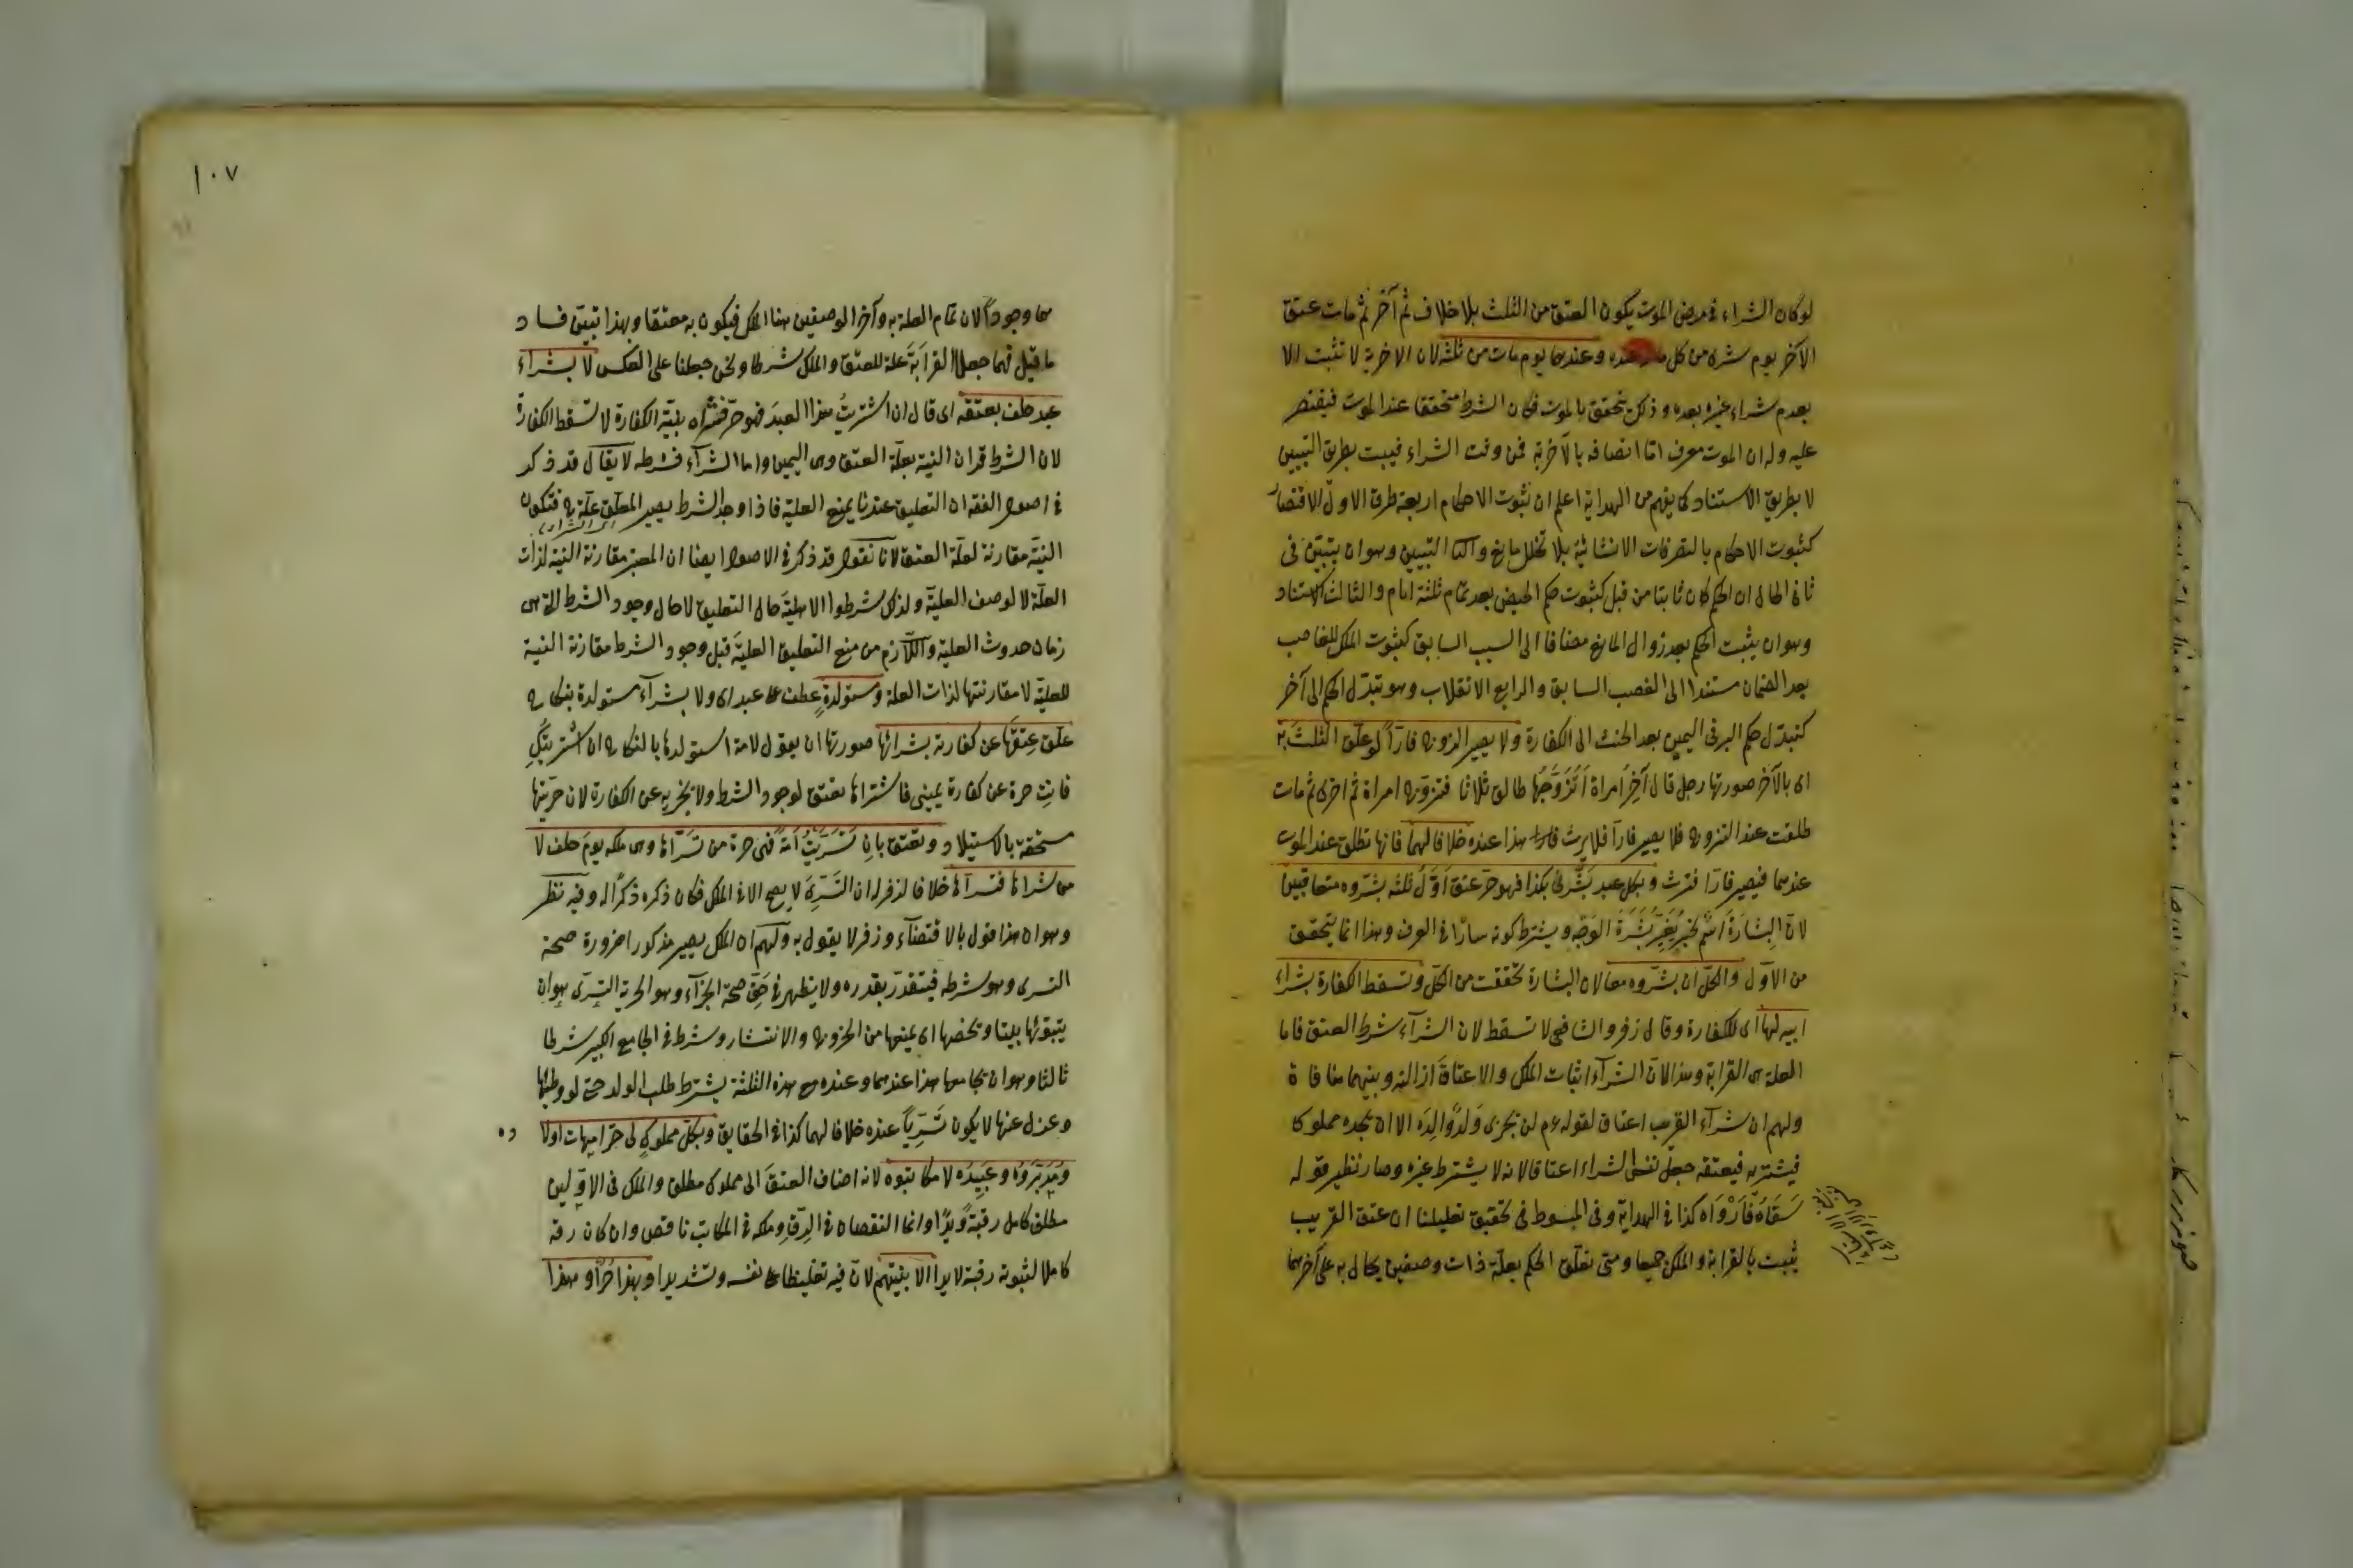 لو كان الشراء في مرض الموت يكون العتق من الثلث بلا خلاف ثم آخر ثم مات عتق
الآخر يوم شرى من كل ماله عنده وعندهما يوم مات من ثلثه لان الاخرية لا تثبت الا
بعدم شراء غيره بعده وذلك يتحقق بالموت فكان الشرط متحققا عند الموت فيقتصر
عليه وله ان الموت معرف اما اتصافه بالآخرية فمن وقت الشراء فيبت بطريق التبيين
لا بطريق الاستناد كما يفهم من الهداية اعلم ان ثبوت الاحكام اربعة طرق الاول الاقتصار
كثبوت الاحكام بالتصرفات الانشائية بلا تخلل مانع والثانى التبيين وهو ان يتبيّن فى
ثانى الحال ان الحكم كان ثابتا من قبل كثبوت حكم الحيض بعد تمام ثلثة ايام والثالث الاستناد
وهو ان يثبت الحكم بعد زوال المانع مضافا الى السبب السابق كثبوت الملك للغاصب
بعد الضمان مستندا الى الغصب السابق والرابع الانقلاب وهو تبدّل الحكم الى آخر
كتبدّل حكم البر فى اليمين بعد الحنث الى الكفارة ولا يصير الزوج فارّا لو علّق الثلث به
اى بالآخر صورتها رجل قال آخر امراة اتزوّجها طالق ثلاثا فتزوّج امراة ثم اخرى ثم مات
طلقت عند التزوج فلا يصير فارّا فلا يرث هذا عنده خلافا لهما فانها تطلق عند الموت
عندهما فيصير فارّا فترث وبكل عبد بشّرنى بكذا فهو حرّ عتق اوّل ثلثه بشّروه متعاقبين
لانّ البشارة اسم لخبر يغيّر بشرة الوجه ويشترط كونه سارّا فى العرف وهذا انما يتحقق
من الاوّل والكلّ ان بشّروه معا لان البشارة تحققت من الكلّ وتسقط الكفارة بشراء
ابيه لها اى للكفارة وقال زفر والشافعى لا تسقط لان الشرآء شرط العتق فاما
العلة هى القرابة وهذا لان الشرآء اثبات الملك والاعتاق ازالته وبينهما منافاة
ولهم ان شرآء القريب اعتاق لقوله عم لن يجزى ولد والده الا ان يجده مملوكا
فيشتريه فيعتقه جعل نفس الشراء اعتاقا لانه لا يشترط غيره وصار نظير قوله
سقاه فارواه كذا فى الهداية وفى المبسوط فى تحقيق تعليلنا ان عتق القريب
يثبت بالقرابة والملك جميعا ومتى تعلّق الحكم بعلّة ذات وصفين يحال به على آخرهما
١٠٧
وجودا لان تمام العلة به وآخر الوصفين هنا الملك فيكون به معتقا وبهذا تبيّن فساد
ما قيل فهما جعلا القرابة علة للعتق والملك شرطا ونحن جعلنا على العكس لا بشراء
عبد حلف بعتقه اى قال ان اشتريت هذا العبد فهو حرّ فشراه بنيّة الكفارة لا تسقط الكفارة
لان الشرط قران النية بعلّة العتق وهى اليمين واما الشرآء فشرطه لا يقال قد ذكر
فى اصول الفقه ان التعليق عندنا يمنع العلية فاذا وجد الشرط يصير المعلّق علّة ح فتكون
النيّة مقارنة لعلّة العتق لانا نقول قد ذكر فى الاصول ايضا ان المعتبر مقارنة النية لذات
العلّة لا لوصف العليّة ولذلك شرطوا الاهلية حال التعليق لا حال وجود الشرط التى هى
زمان حدوث العلية واللازم من منع التعليق العليّة قبل وجود الشرط مقارنة النية
للعليّة لا مقارنتها لذات العلة ومستولدة عطف على عبد اى ولا بشرآء مستولدة بنكاح
علّق عتقها عن كفارته بشرائها صورتها ان يقول لامة استولدها بالنكاح ان اشتريتك
فانت حرة عن كفارة يمينى فاشتراها تعتق لوجود الشرط ولا يجزيه عن الكفارة لان حريتها
مستحقة بالاستيلاد وتعتق بان تسرّيت امة فهى حرة من تسرّاها وهى ملكه يوم حلف لا
من شراها فتسرّاها خلافا لزفر له ان التسرى لا يصح الا فى الملك فكان ذكره ذكرا له وفيه نظر
وهو ان هذا قول بالاقتضآء وزفر لا يقول به ولهم ان الملك يصير مذكورا ضرورة صحة
التسرى وهو شرطه فيتقدّر بقدره ولا يظهر فى حق صحة الجزآء وهو الحرية التسرّى هو ان
يتبوّئها بيتا ويحصنها اى يمنعها من الخروج والانتشار وشرط فى الجامع الكبير شرطا
ثالثا وهو ان يجامعها هذا عندهما وعنده مع هذه الثلثة يشترط طلب الولد حتى لو وطئها
وعزل عنها لا يكون تسرّيا عنده خلافا لهما كذا فى الحقايق وبكلّ مملوك لى حرّ امهات اولاده
ومدبّروه وعبيده لا مكاتبوه لانه اضاف العتق الى مملوك مطلق والملك فى الاوّلين
مطلق كامل رقبة ويدا وانما النقصان فى الرّق وملكه فى المكاتب ناقص وان كان رقه
كاملا لثبوته رقبة لا يدا الا بنيّتهم لانّ فيه تغليظا على نفسه وتشديدا وبهذا حرّ او هذا